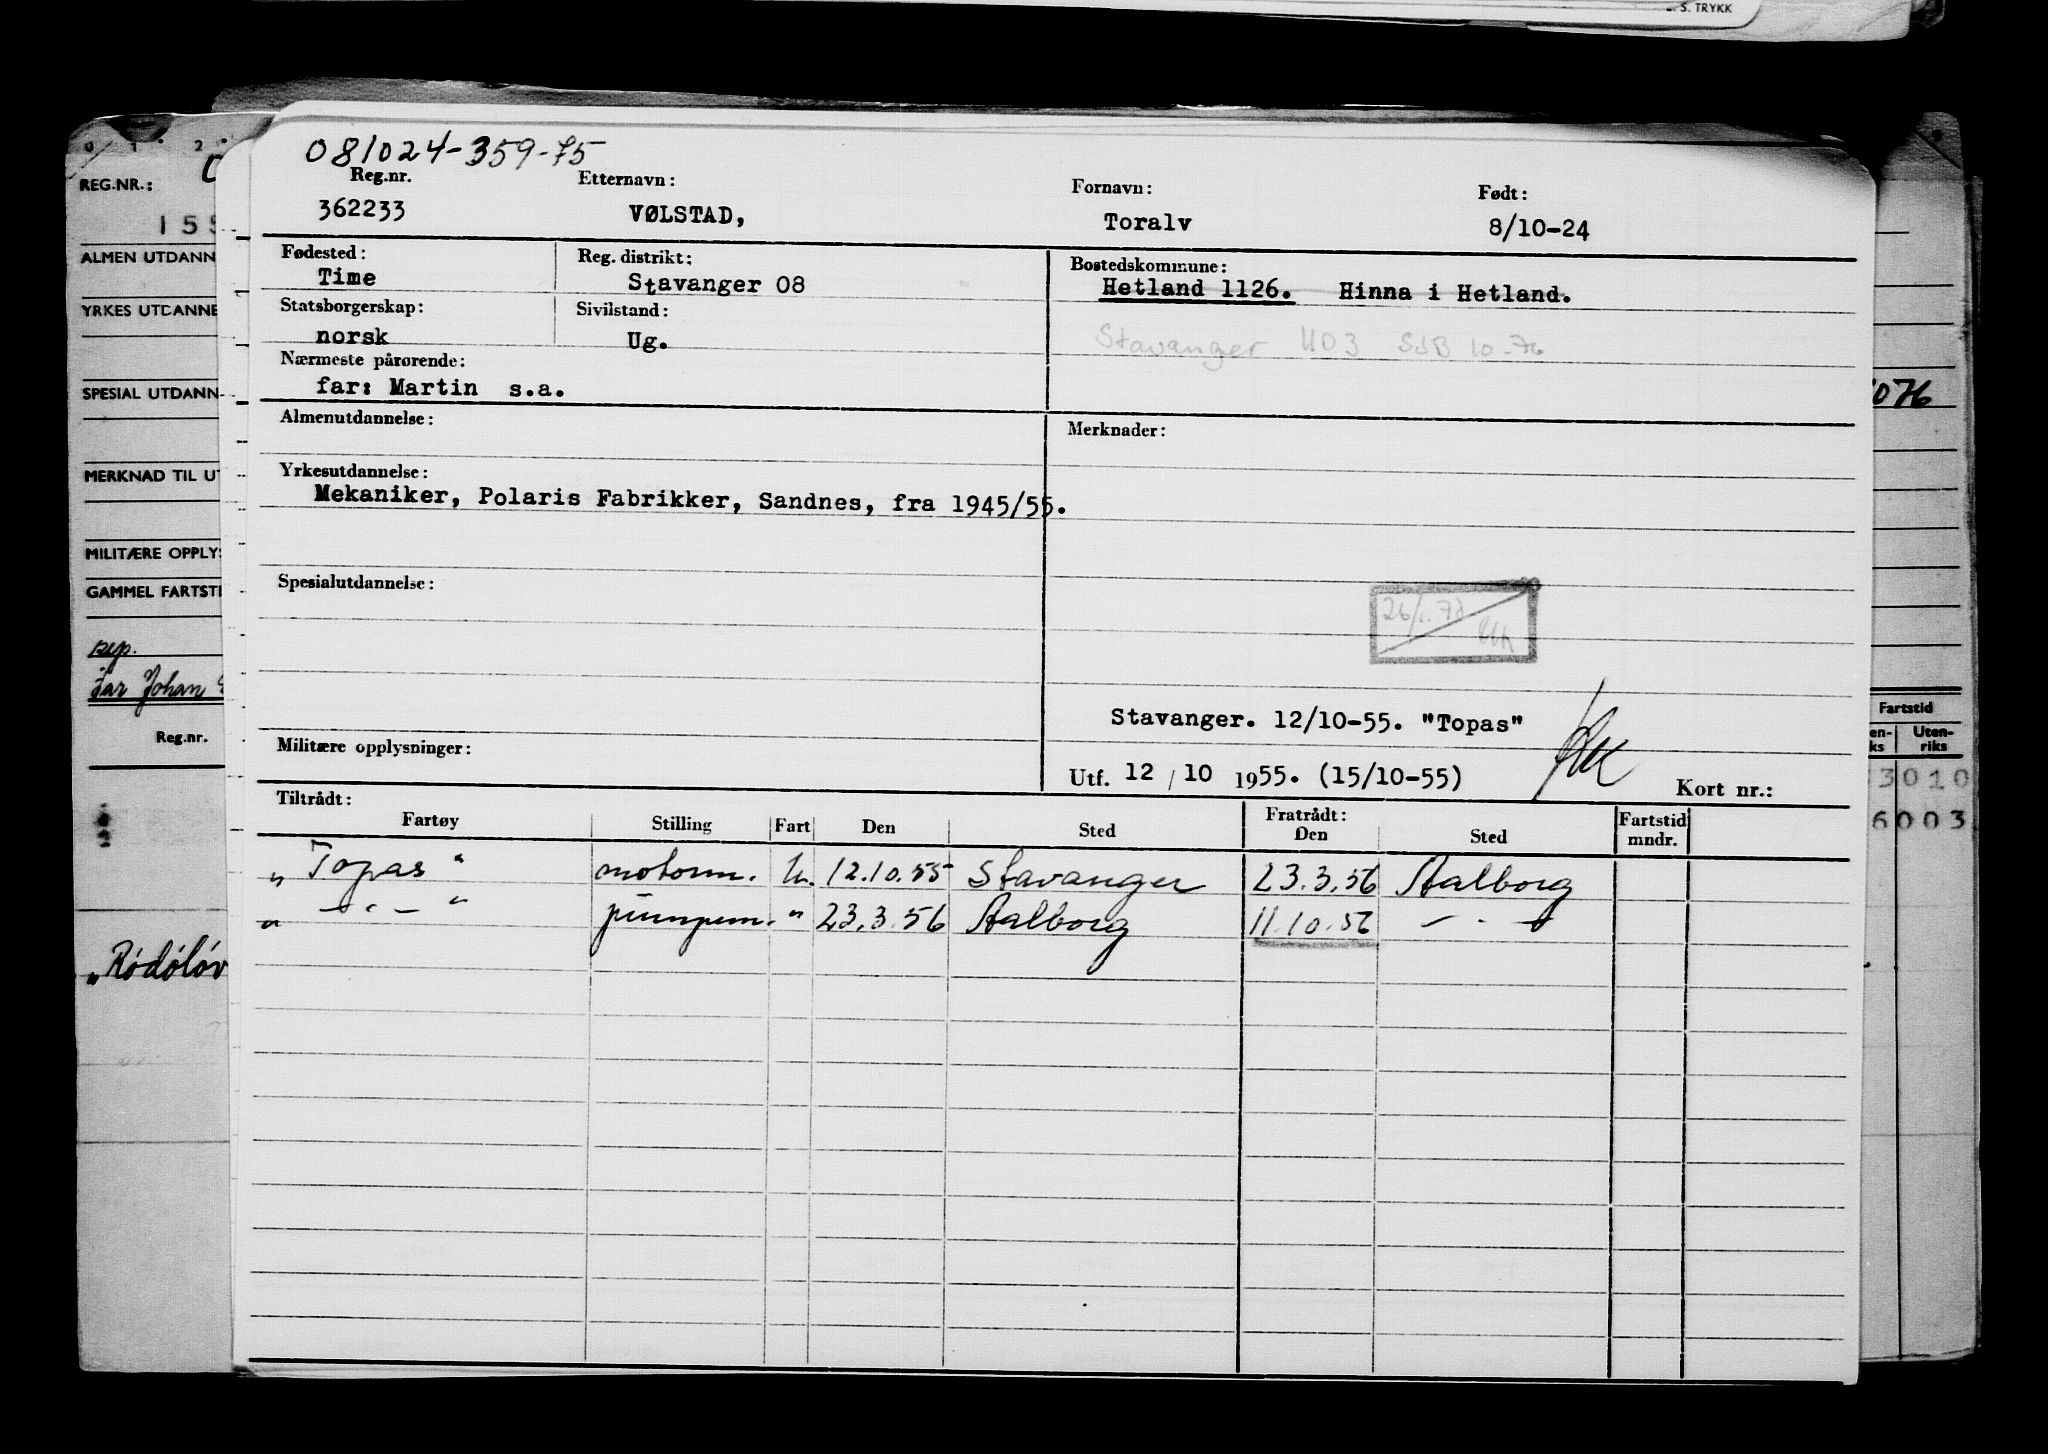 S. TRYKK
081024-359-75
Reg.nr. Etternavn: Fornavn: Født:
362233 VØLSTAD, Toralv 8/10-24
Fødested: Reg. distrikt: Bostedskommune:
Time Stavanger 08 Hetland 1126. Hinna i Hetland.
Statsborgerskap: Sivilstand:
norsk Ug. Stavanger 1103 SJB 10-76
Nærmeste pårørende:
far: Martin s.a.
Almenutdannelse: Merknader:
Yrkesutdannelse:
Mekaniker, Polaris Fabrikker, Sandnes, fra 1945/55.
Spesialutdannelse:
Stavanger. 12/10-55. "Topas"
Militære opplysninger:
Utf. 12 / 10 1955. (15/10-55) Kort nr.:
Tiltrådt: Fratrådt: Fartstid
Fartøy Stilling Fart Den Sted Den Sted mndr.
„ Topas “ motorm. U. 12.10.55 Stavanger 23.3.56 Aalborg
„ — . — “ pumpem. " 23.3.56 Aalborg 11.10.56 — . —
0 1 2
REG.NR.:
155
ALMEN UTDANN
YRKES UTDANNE
SPESIAL UTDANN
MERKNAD TIL UT
MILITÆRE OPPLYS
GAMMEL FARTSTI
sep.
far Johan
Reg.nr.
„Rödölöv
1076
Fartstid
en-ks Uten-riks
3010
6003